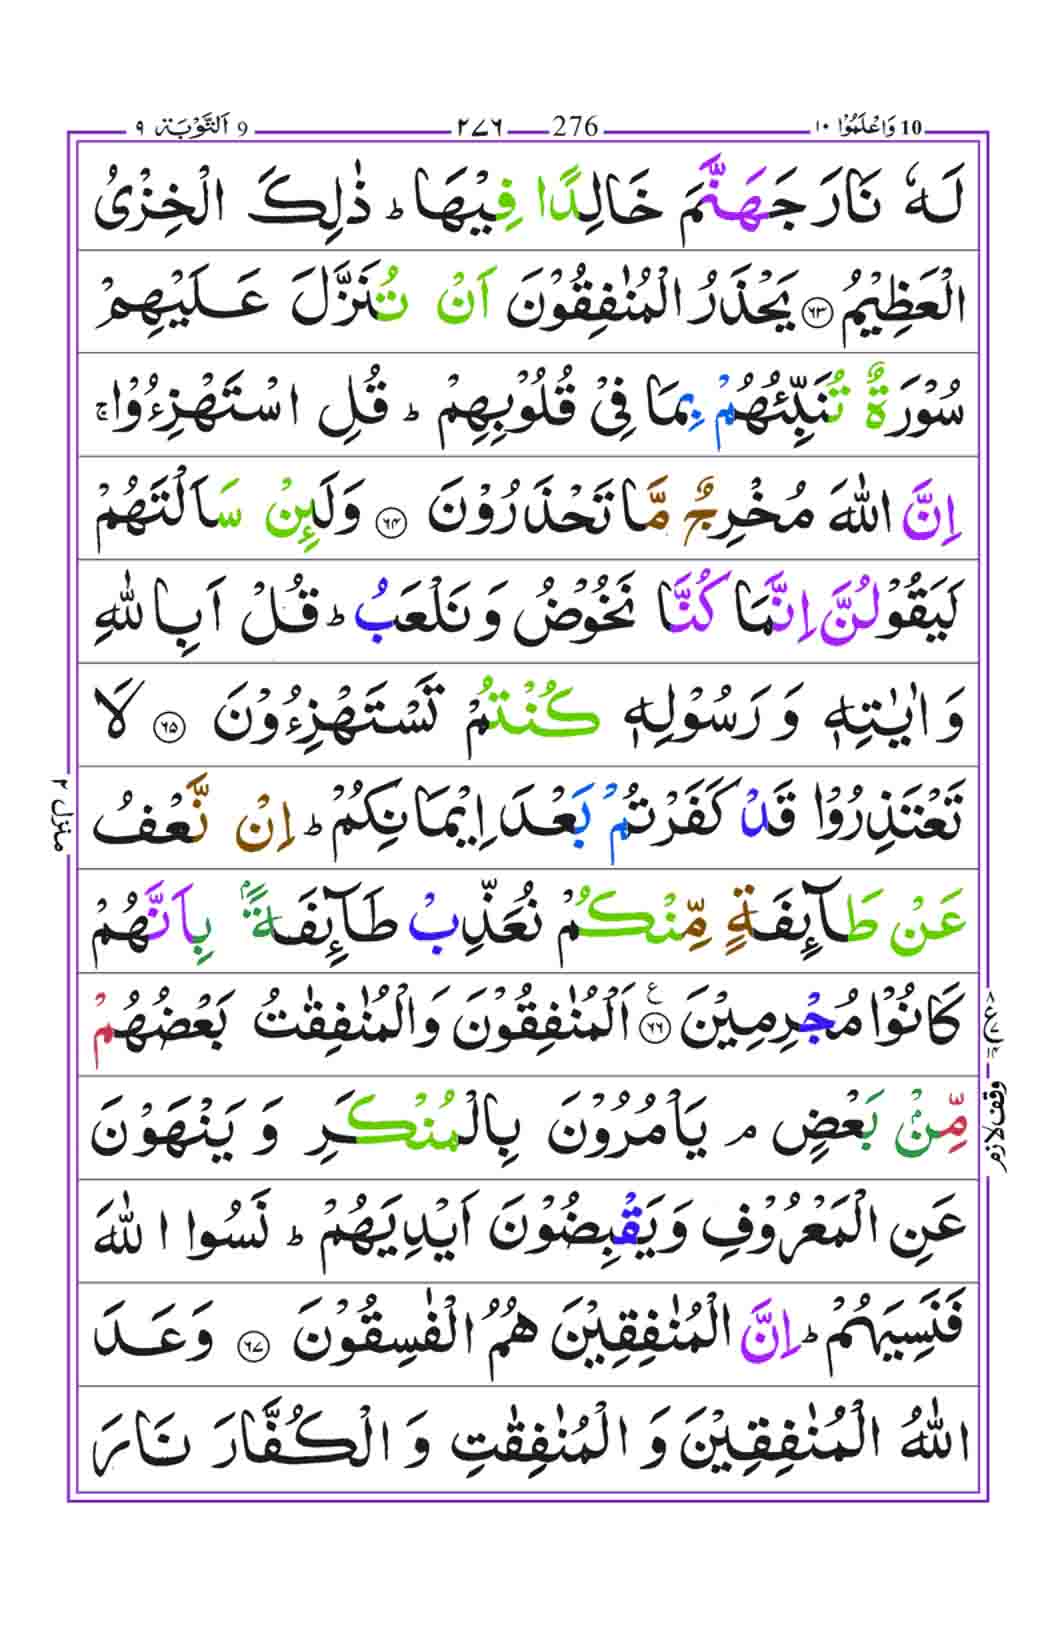 10 وَاعْلَمُوْٓا ١٠
276 ٢٧٦
9 اَلتَّوْبَة ٩
لَهٗ نَارَ جَهَنَّمَ خَالِدًا فِيْهَا ؕ ذٰلِكَ الْخِزْىُ
الْعَظِيْمُ ﴿٦٣﴾ يَحْذَرُ الْمُنٰفِقُوْنَ اَنْ تُنَزَّلَ عَلَيْهِمْ
سُوْرَةٌ تُنَبِّئُهُمْ بِمَا فِىْ قُلُوْبِهِمْ ؕ قُلِ اسْتَهْزِءُوْا ۚ
اِنَّ اللّٰهَ مُخْرِجٌ مَّا تَحْذَرُوْنَ ﴿٦٤﴾ وَلَٮِٕنْ سَاَلْتَهُمْ
لَيَقُوْلُنَّ اِنَّمَا كُنَّا نَخُوْضُ وَنَلْعَبُ ؕ قُلْ اَبِاللّٰهِ
وَاٰيٰتِهٖ وَرَسُوْلِهٖ كُنْتُمْ تَسْتَهْزِءُوْنَ ﴿٦٥﴾ لَا
تَعْتَذِرُوْا قَدْ كَفَرْتُمْ بَعْدَ اِيْمَانِكُمْ ؕ اِنْ نَّعْفُ
عَنْ طَآٮِٕفَةٍ مِّنْكُمْ نُعَذِّبْ طَآٮِٕفَةًۢ بِاَنَّهُمْ
كَانُوْا مُجْرِمِيْنَ ﴿٦٦﴾ ع اَلْمُنٰفِقُوْنَ وَالْمُنٰفِقٰتُ بَعْضُهُمْ
مِّنْۢ بَعْضٍ ۘ يَاْمُرُوْنَ بِالْمُنْكَرِ وَيَنْهَوْنَ
عَنِ الْمَعْرُوْفِ وَيَقْبِضُوْنَ اَيْدِيَهُمْ ؕ نَسُوا اللّٰهَ
فَنَسِيَهُمْ ؕ اِنَّ الْمُنٰفِقِيْنَ هُمُ الْفٰسِقُوْنَ ﴿٦٧﴾ وَعَدَ
اللّٰهُ الْمُنٰفِقِيْنَ وَالْمُنٰفِقٰتِ وَالْكُفَّارَ نَارَ
منزل ٢
وقف لازم